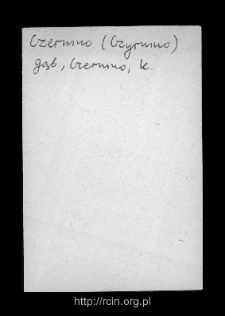 Czermno (Czyrmno)
gąb, Czermno, k.
http://rcin.org.pl